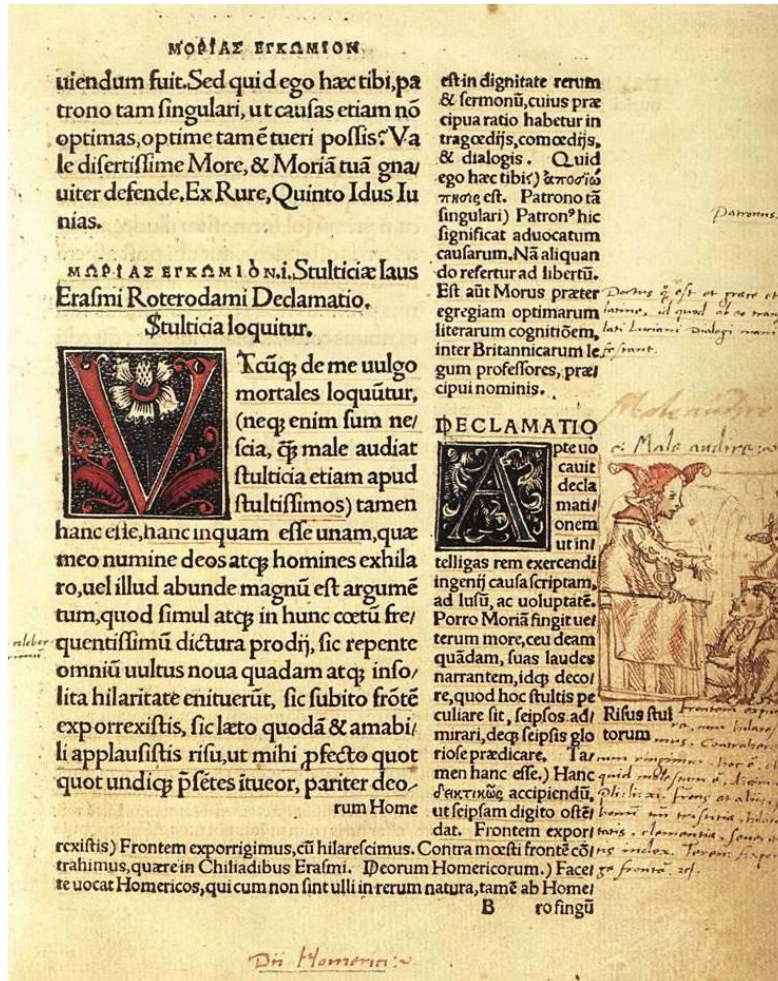 ΜΟΡΙΑΣ ΕΓΚΩΜΙΟΝ
uiendum fuit. Sed quid ego hæc tibi, pa
trono tam singulari, ut causas etiam nõ
optimas, optime tamẽ tueri possis? Va
le disertissime More, & Moriã tuã gna/
uiter defende. Ex Rure, Quinto Idus Iu
nias.
ΜΩΡΙΑΣ ΕΓΚΩΜΙΟΝ.i. Stulticiæ laus
Erasmi Roterodami Declamatio.
Stulticia loquitur.
VTcũq; de me uulgo
mortales loquũtur,
(neq; enim sum ne/
scia, q̃ male audiat
stulticia etiam apud
stultissimos) tamen
hanc esse, hanc inquam esse unam, quæ
meo numine deos atq; homines exhila
ro, uel illud abunde magnũ est argumẽ
tum, quod simul atq; in hunc cœtũ fre/
quentissimũ dictura prodij, sic repente
omniũ uultus noua quadam atq; inso/
lita hilaritate enituerũt, sic subito frõtẽ
exporrexistis, sic læto quodã & amabi/
li applausistis risu, ut mihi ꝓfecto quot
quot undiq; p̃sẽtes ĩtueor, pariter deo/
rum Home
est in dignitate rerum
& sermonũ, cuius præ
cipua ratio habetur in
tragœdijs, comœdijs,
& dialogis. Quid
ego hæc tibi?) ἀποσιώ
πησις est. Patrono tã
singulari) Patronꝰ hic
significat aduocatum
causarum. Nã aliquan
do refertur ad libertũ.
Est aũt Morus præter
egregiam optimarum
literarum cognitiõem,
inter Britannicarum le
gum professores, præ/
cipui nominis.
Patronus.
DECLAMATIO
Apte uo
cauit
decla
mati/
onem
ut in/
telligas rem exercendi
ingenij causa scriptam,
ad lusũ, ac uoluptatẽ.
Porro Moriã fingit ue/
terum more, ceu deam
quãdam, suas laudes
narrantem, idq; deco/
re, quod hoc stultis pe
culiare sit, seipsos ad/
mirari, deq; seipsis glo
riose prædicare. Ta/
men hanc esse.) Hanc
δεικτικῶς accipiendũ,
ut seipsam digito ostẽ/
dat. Frontem expor/
Male audire
Risus stul
torum
rexistis) Frontem exporrigimus, cũ hilarescimus. Contra mœsti frontẽ cõ/
trahimus, quære in Chiliadibus Erasmi. Deorum Homericorum.) Face/
te uocat Homericos, qui cum non sint ulli in rerum natura, tamẽ ab Home/
B ro fingũ
Dii Homerici:~